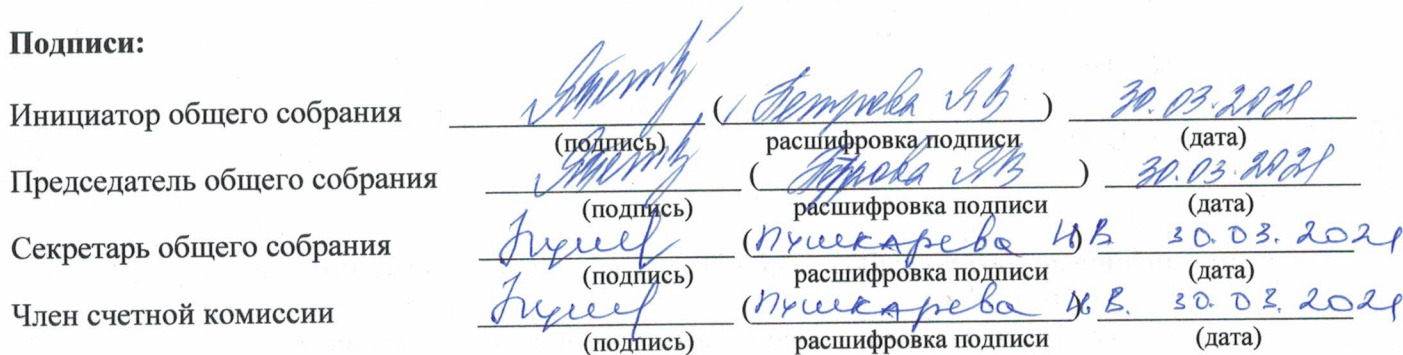 Подписи:
Инициатор общего собрания (Петрова ЯВ) 30.03.2021
(подпись) расшифровка подписи (дата)
Председатель общего собрания (Петрова ЯВ) 30.03.2021
(подпись) расшифровка подписи (дата)
Секретарь общего собрания (Пушкарева В) 30.03.2021
(подпись) расшифровка подписи (дата)
Член счетной комиссии (Пушкарева В.) 30.03.2021
(подпись) расшифровка подписи (дата)